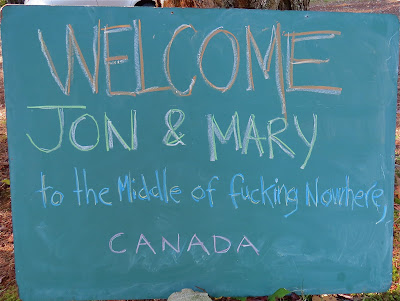 WELCOME
JON & MARY
to the Middle of fucking Nowhere,
CANADA